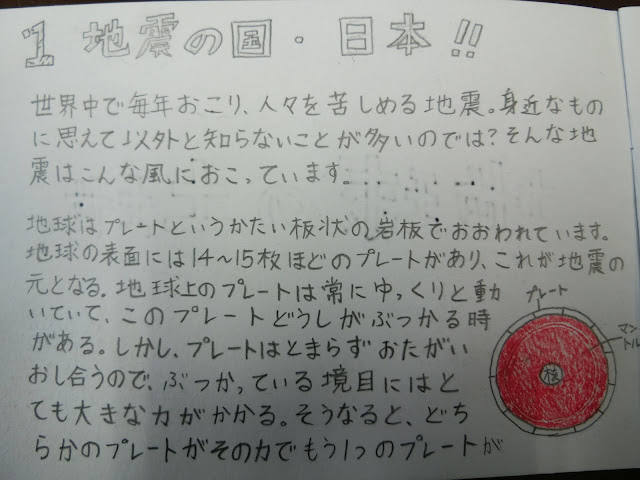 1 地震の国・日本!!
世界中で毎年おこり、人々を苦しめる地震。身近なもの
に思えて以外と知らないことが多いのでは?そんな地
震はこんな風におこっています。
地球はプレートというかたい板状の岩板でおおわれています。
地球の表面には14〜15枚ほどのプレートがあり、これが地震の
元となる。地球上のプレートは常にゆっくりと動
いていて、このプレートどうしがぶつかる時
がある。しかし、プレートはとまらずおたがい
おし合うので、ぶつかっている境目にはと
ても大きな力がかかる。そうなると、どち
らかのプレートがその力でもう1つのプレートが
プレート
マン
トル
核